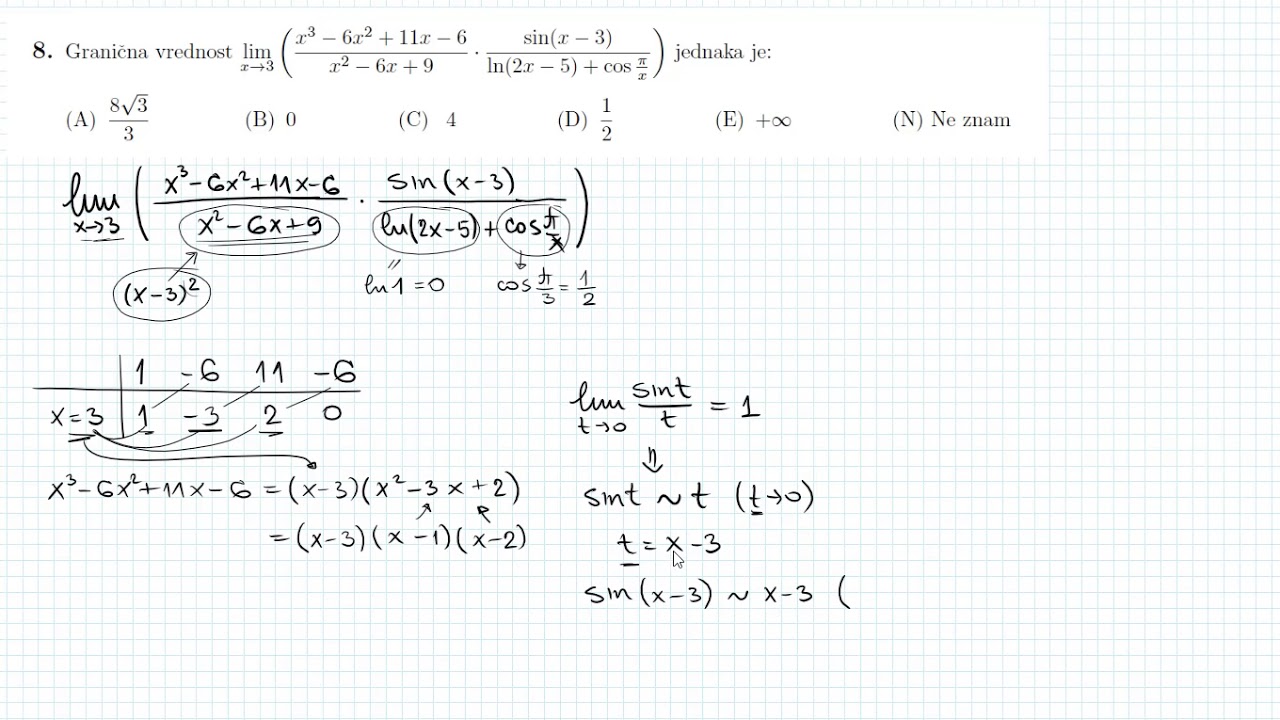 8. Granična vrednost lim x→3 ( (x³ − 6x² + 11x − 6)/(x² − 6x + 9) · sin(x − 3)/(ln(2x − 5) + cos π/x) ) jednaka je:
(A) 8√3/3 (B) 0 (C) 4 (D) 1/2 (E) +∞ (N) Ne znam
lim x→3 ( (x³−6x²+11x−6)/(x²−6x+9) · sin(x−3)/(ln(2x−5)+cos π/x) )
(x−3)² ln1=0 cos π/3 = 1/2
1 −6 11 −6
x=3 1 −3 2 0
lim t→0 sint/t = 1
⇓
x³−6x²+11x−6 = (x−3)(x²−3x+2)
= (x−3)(x−1)(x−2)
sint ~ t (t→0)
t = x−3
sin(x−3) ~ x−3 (